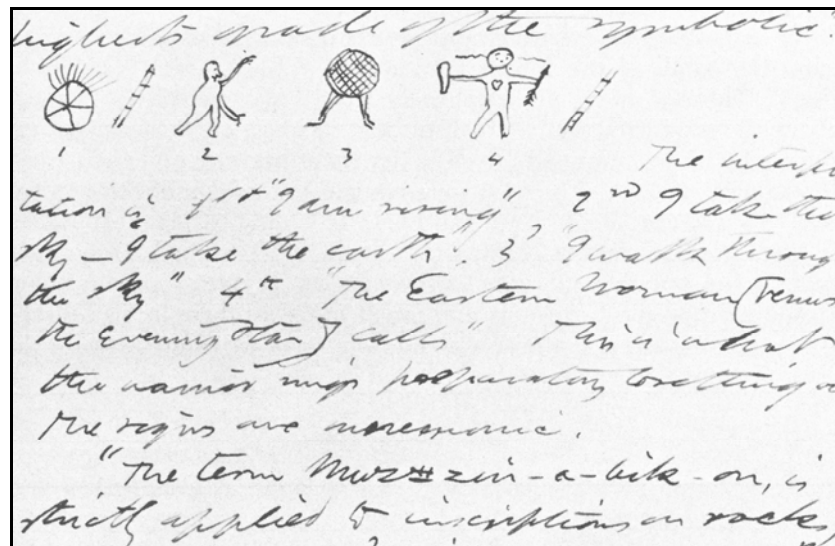 highest grade of the symbolic.
1 2 3 4
The interpre
tation is, 1st "I am rising" 2nd I take the
sky - I take the earth". 3d "I walk through
the sky" 4th "The Eastern Woman (Venus
the Evening Star) calls" This is what
the warrior sings preparatory to setting
The signs are mnemonic.
"The term Muz-zin-a-bik-on, is
strictly applied to inscriptions on rocks